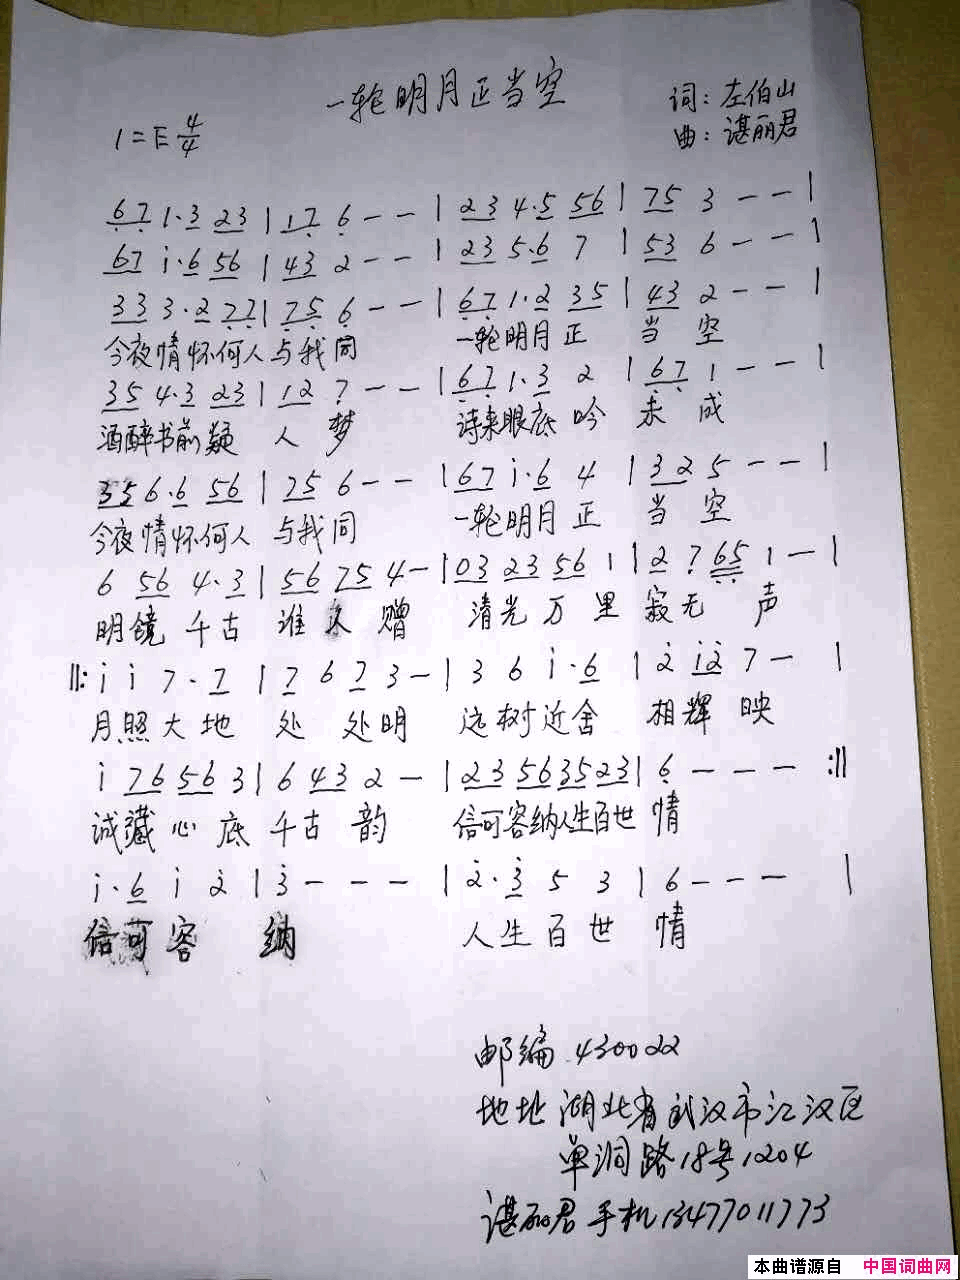 一轮明月正当空
词：左伯山
1=E 4/4
曲：谌丽君
67 1·3 23 | 17 6 - - | 23 4·5 56 | 75 3 - - |
67 i·6 56 | 43 2 - - | 23 5·6 7 | 53 6 - - |
333 3·2 77 | 75 6 - - | 67 1·2 35 | 43 2 - - |
今夜情怀何人与我同 一轮明月正 当 空
35 4·3 23 | 12 7 - - | 67 1·3 2 | 67 1 - - |
酒醉书前疑 人 梦 诗来眼底吟 未 成
35 6·6 56 | 75 6 - - | 67 i·6 4 | 32 5 - - |
今夜情怀何人 与我同 一轮明月正 当 空
6 56 4·3 | 56 75 4 - | 03 23 56 1 | 2 7 65 1 - |
明镜千古 谁 赠 清光万里 寂无 声
‖: i i 7·7 | 7 6 7 3 - | 3 6 i·6 | 2 i2 7 - |
月照大地 处 处明 远树近舍 相辉映
i 76 56 3 | 6 43 2 - | 23 56 35 23 | 6 - - - :‖
诚藏心底 千古韵 信可容纳人生百世 情
i·6 i 2 | 3 - - - | 2·3 5 3 | 6 - - - |
信可容 纳 人生百世 情
邮编 430022
地址 湖北省武汉市江汉区
单洞路18号1204
谌丽君 手机13477011773
本曲谱源自 中国词曲网